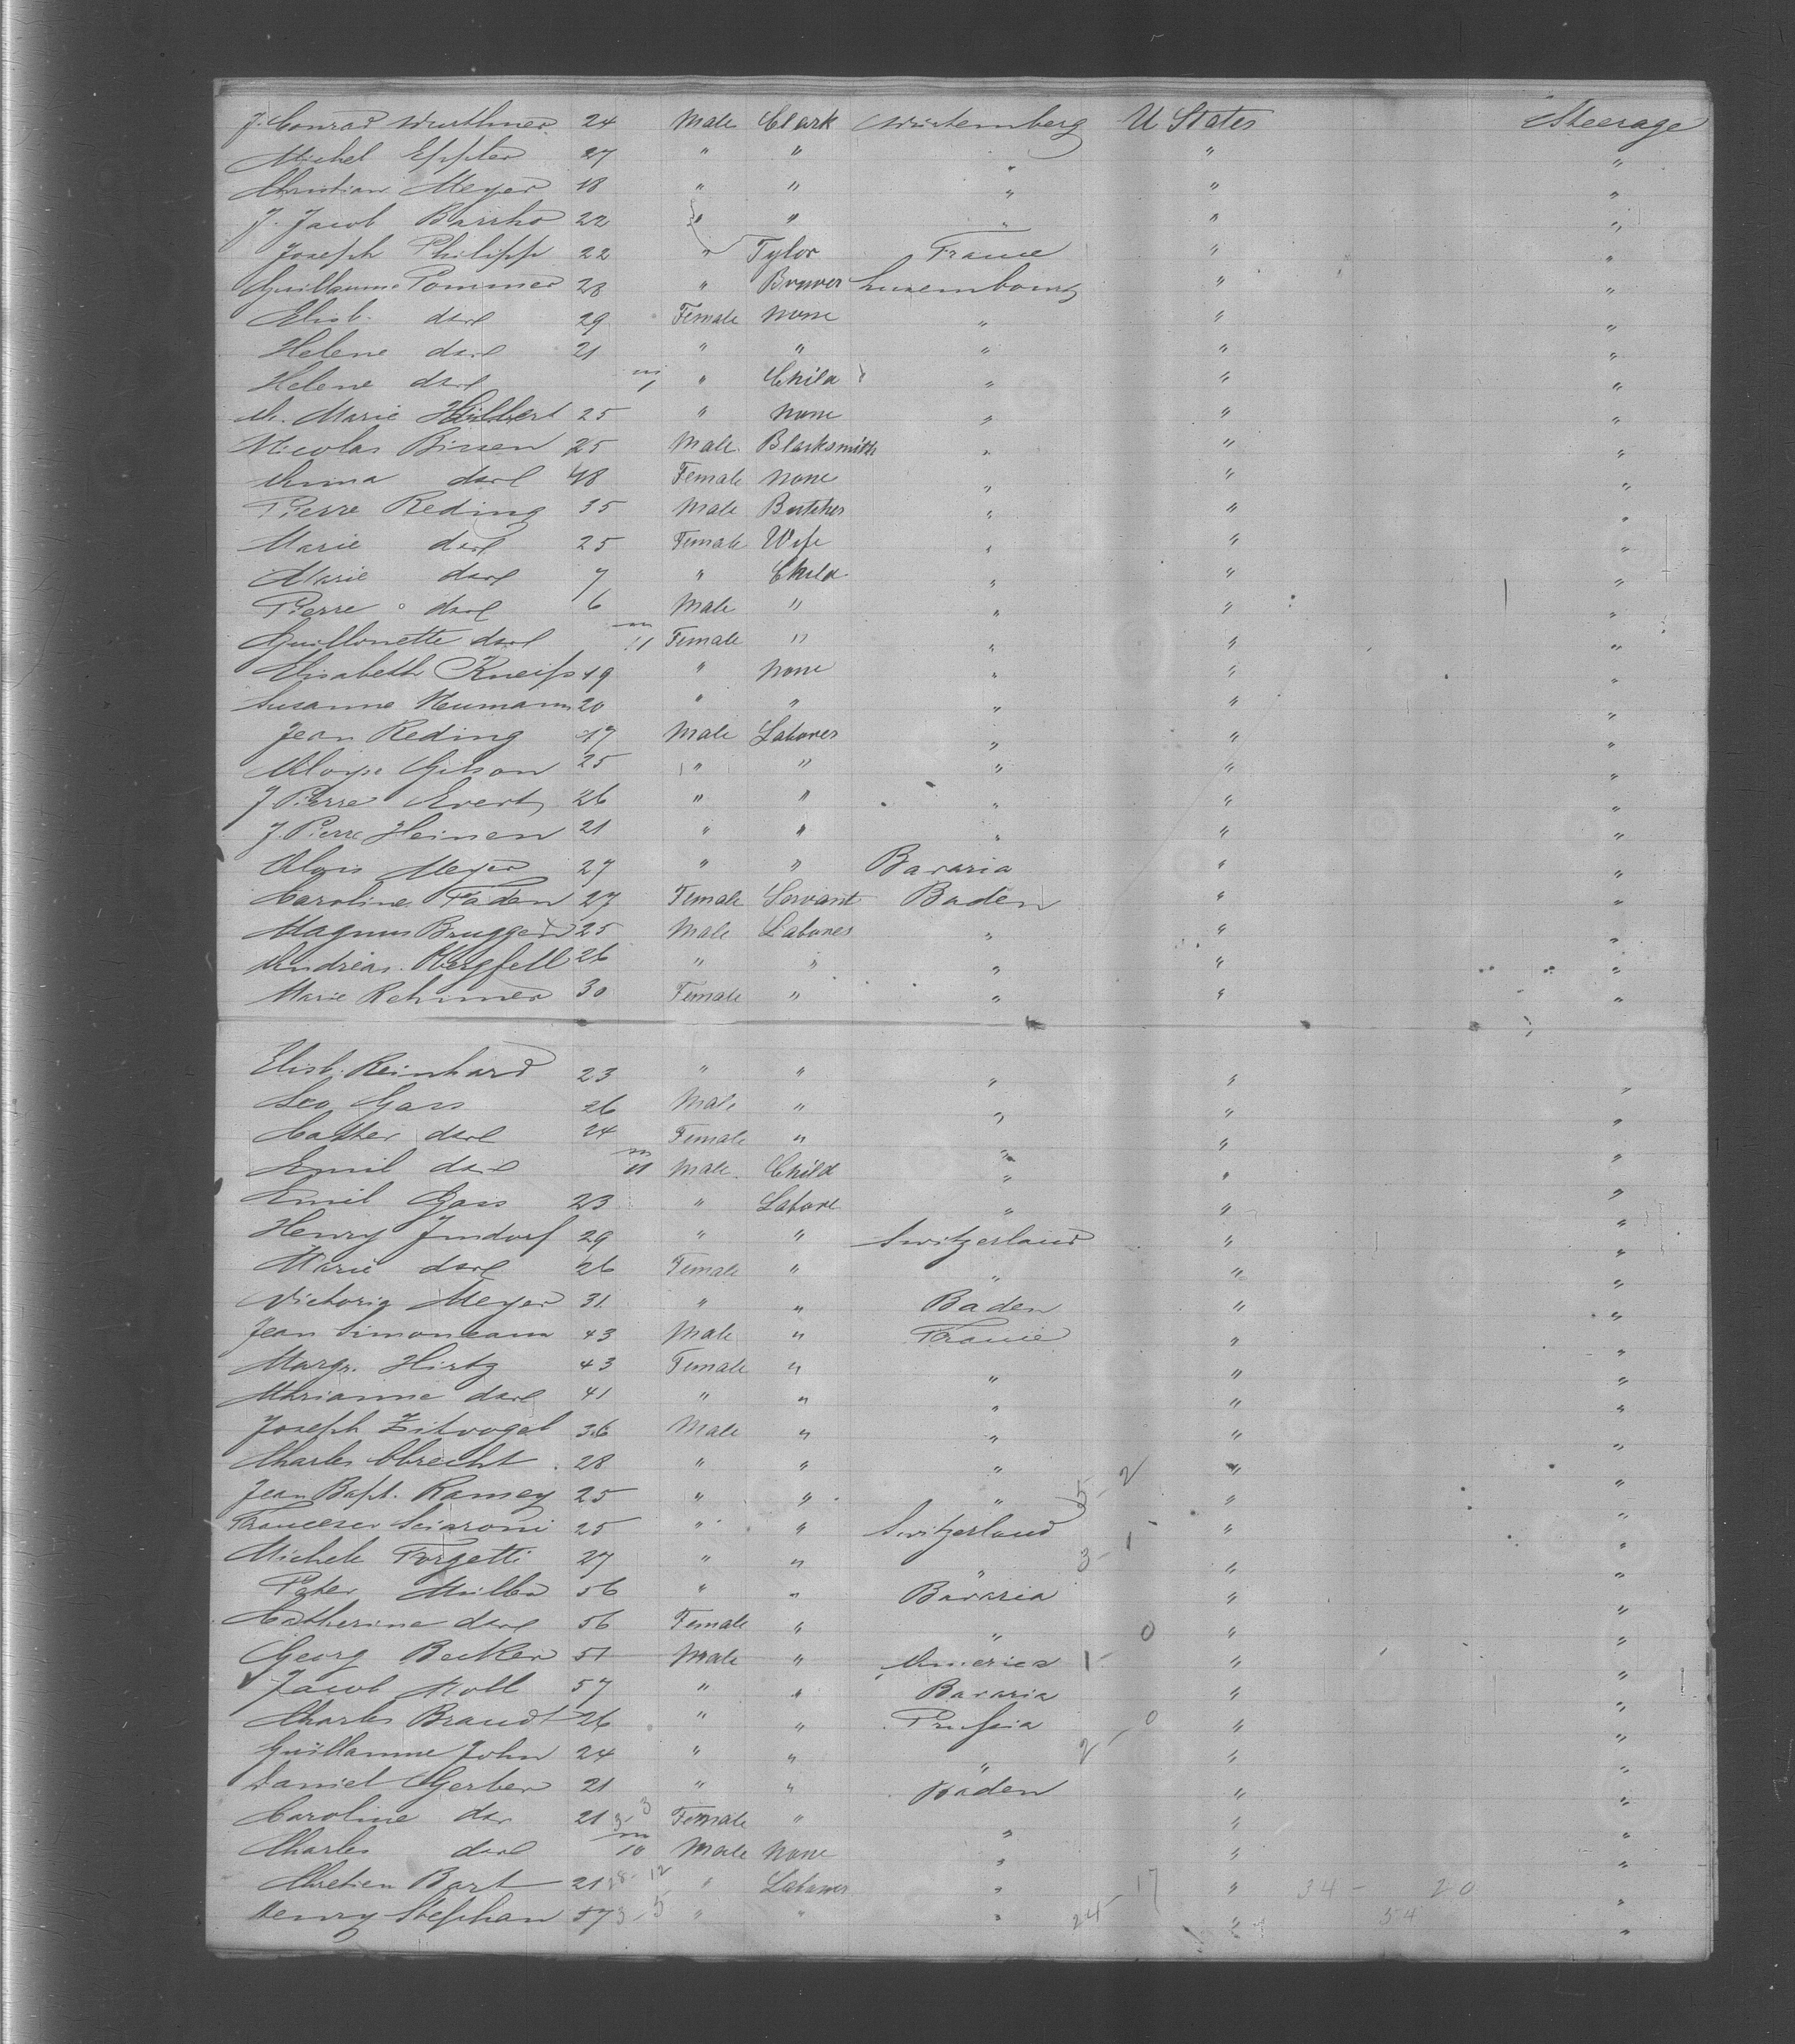 J. Conrad Wurthner 24 Male Clark Würtemberg U States Steerage
Michel Eppler 27 " " " " "
Christian Meyer 18 " " " " "
J. Jacob Barrho 22 " " " " "
Joseph Philipp 22 " Tylor France " "
Guillaume Pommer 28 " Brewer Luxembourg " "
Elisb. dael 29 Female None " " "
Helene dael 21 " " " " "
Helene dael m 1 " Child " " "
M. Marie Hilbert 25 " None " " "
Nicolas Bissen 25 Male Blacksmith " " "
Anna dael 48 Female None " " "
Pierre Reding 35 Male Butcher " " "
Marie dael 25 Female Wife " " "
Marie dael 7 " Child " " "
Pierre dael 6 Male " " " "
Guillonette dael m 11 Female " " " "
Elisabeth Kneip 19 " None " " "
Susanne Neumann 20 " " " " "
Jean Reding 17 Male Laborer " " "
Gilson 25 " " " " "
J Pierre Evert 26 " " " " "
J. Pierre Heinen 21 " " " " "
Aloys Meyer 27 " " Bavaria " "
Caroline Faden 27 Female Servant Baden " "
Magnus Brugger 25 Male Laborer " " "
Andreas Hergfell 26 " " " " "
Marie Rehmer 30 Female " " " "
Elisb. Reinhard 23 " " " " "
Leo Gass 26 Male " " " "
Cather dael 24 Female " " " "
Emil dael m 11 Male Child " " "
Emil Gass 23 " Labore " " "
Henry Imdorf 29 " " Switzerland " "
Marie dael 26 Female " " " "
Victoria Meyer 31 " " Baden " "
Jean Simoneam 43 Male " France " "
Margr. Hirtz 43 Female " " " "
Marianne dael 41 " " " " "
Joseph Zitvogel 36 Male " " " "
Charles Obrecht 28 " " " " "
Jean Bapt. Ramey 25 " " " 5 - 2 " "
Francesco Sciaroni 25 " " Switzerland " "
Michele Forgetti 27 " " " 3 - 1 " "
Peter Muller 56 " " Bavaria " "
Catherine dael 56 Female " " 0 " "
Georg Becker 51 Male " America 1 - " "
Jacob Moll 57 " " Bavaria " "
Charles Brandt 26 " " Prussia 0 " "
Guillaume John 24 " " " 2 - " "
Daniel Gerber 21 " " Baden " "
Caroline dae 21 3 3 Female " " " "
Charles dael m 10 Male None " " "
Chretien Bart 21 28 - 12 " Laborer " 17 " 34 - 20 "
Henry Stephan 57 3 - 5 " " " 24 - " 54 "